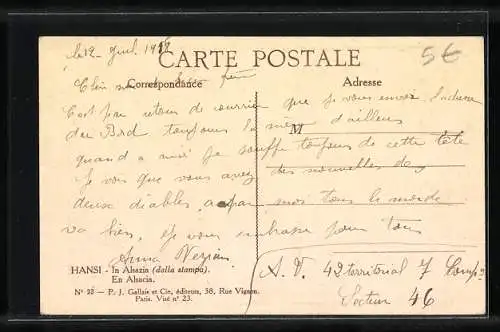 le 12 1918
5€
CARTE POSTALE
Correspondance
Adresse
C'est par retour de courrier que je vous envoi
du Bird toujours la d'ailleurs
M
quand a moi je souffre toujours de cette tete
Je vois que vous avez des nouvelles des
deux diables a part moi tous le monde
va bien, je vous embrasse pour tous
Anna
HANSI - In Alsazia (dalla stampa).
En Alsacia.
Nº 22 - P. J. Gallais et Cie, éditeurs, 38, Rue Vignon.
Paris. Visé nº 23.
42 territorial 7 Comp
Secteur 46